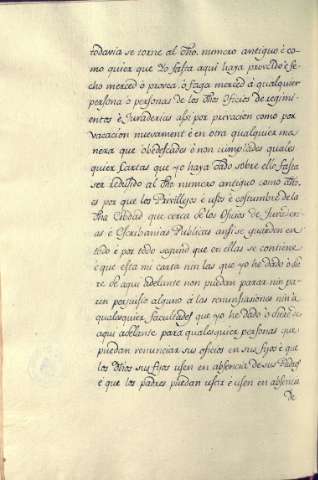 todavia se torne al dho. numero antiguo è co-
mo quier que Yo fasta aqui haya proveido è fe-
cho merced ò provea, ò faga merced à qualquier
persona ò personas de los dhos oficios de regimi-
entos è Juraderias assi por privacion como por
vacacion nuevamente è en otra qualquier ma-
nera que obedescades è non cumplades quales
quier Cartas que yo haya dado sobre ello fasta
ser reducido al dho numero antiguo como dho.
es por que los Privillejos è usos è costumbre de la
dha Ciudad que cerca de los Oficios de Juraderi-
as è Escribanias Publicas ansi se guarden en
todo è por todo segund que en ellas se contiene
è que esta mi carta nin las que yo he dado ò die-
re de aqui adelante non puedan parar nin pa-
ren perjuisio alguno à las renunsiasiones nin à
qualesquier facultades que yo he dado ò diere de
aqui adelante para qualesquier personas que
puedan renunciar sus oficios en sus fijos è que
los dhos sus fijos usen en absencia de sus Padres
è que los padres puedan usar è usen en absencia
de